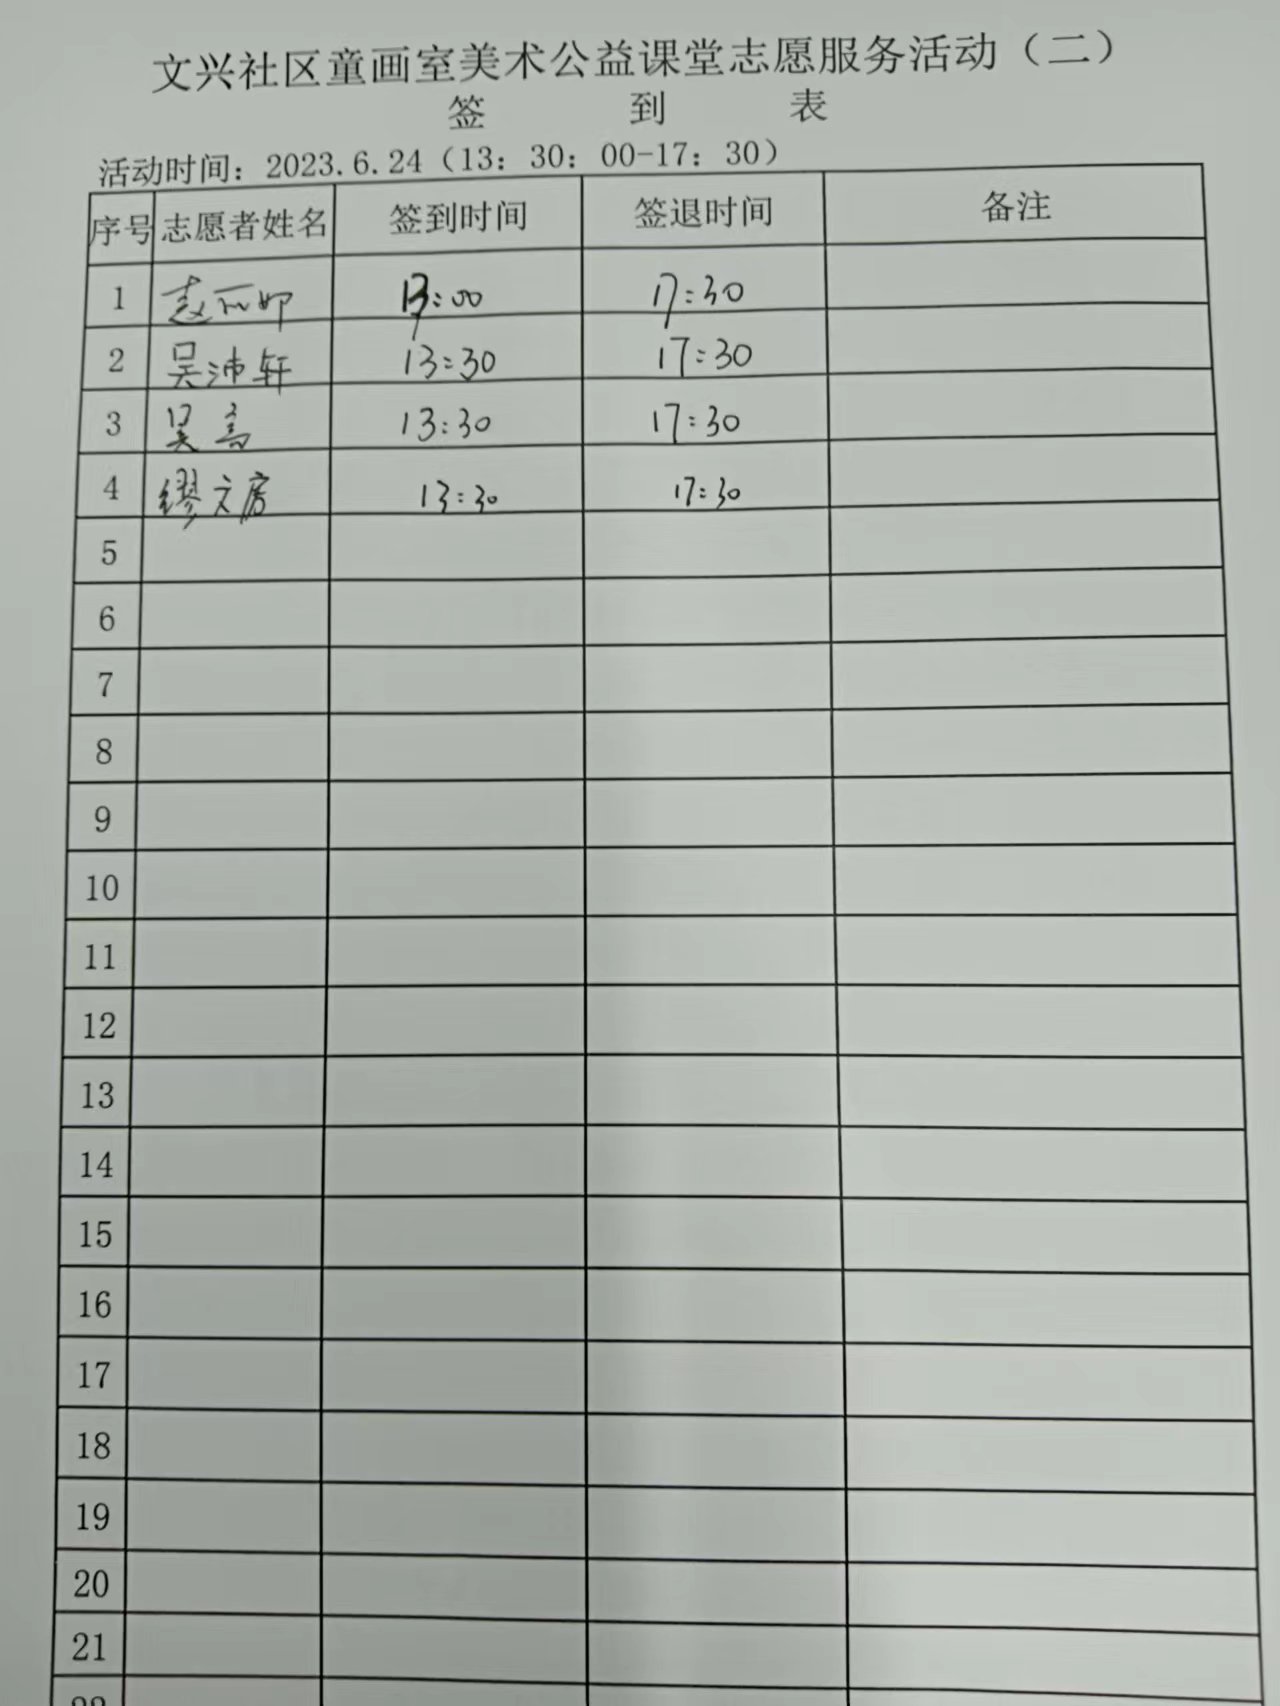 文兴社区童画室美术公益课堂志愿服务活动（二）
签 到 表
活动时间：2023.6.24（13：30：00-17：30）
序号 志愿者姓名 签到时间 签退时间 备注
1 赵 13:00 17:30
2 吴沛轩 13:30 17:30
3 吴 13:30 17:30
4 缪文房 13:30 17:30
5
6
7
8
9
10
11
12
13
14
15
16
17
18
19
20
21